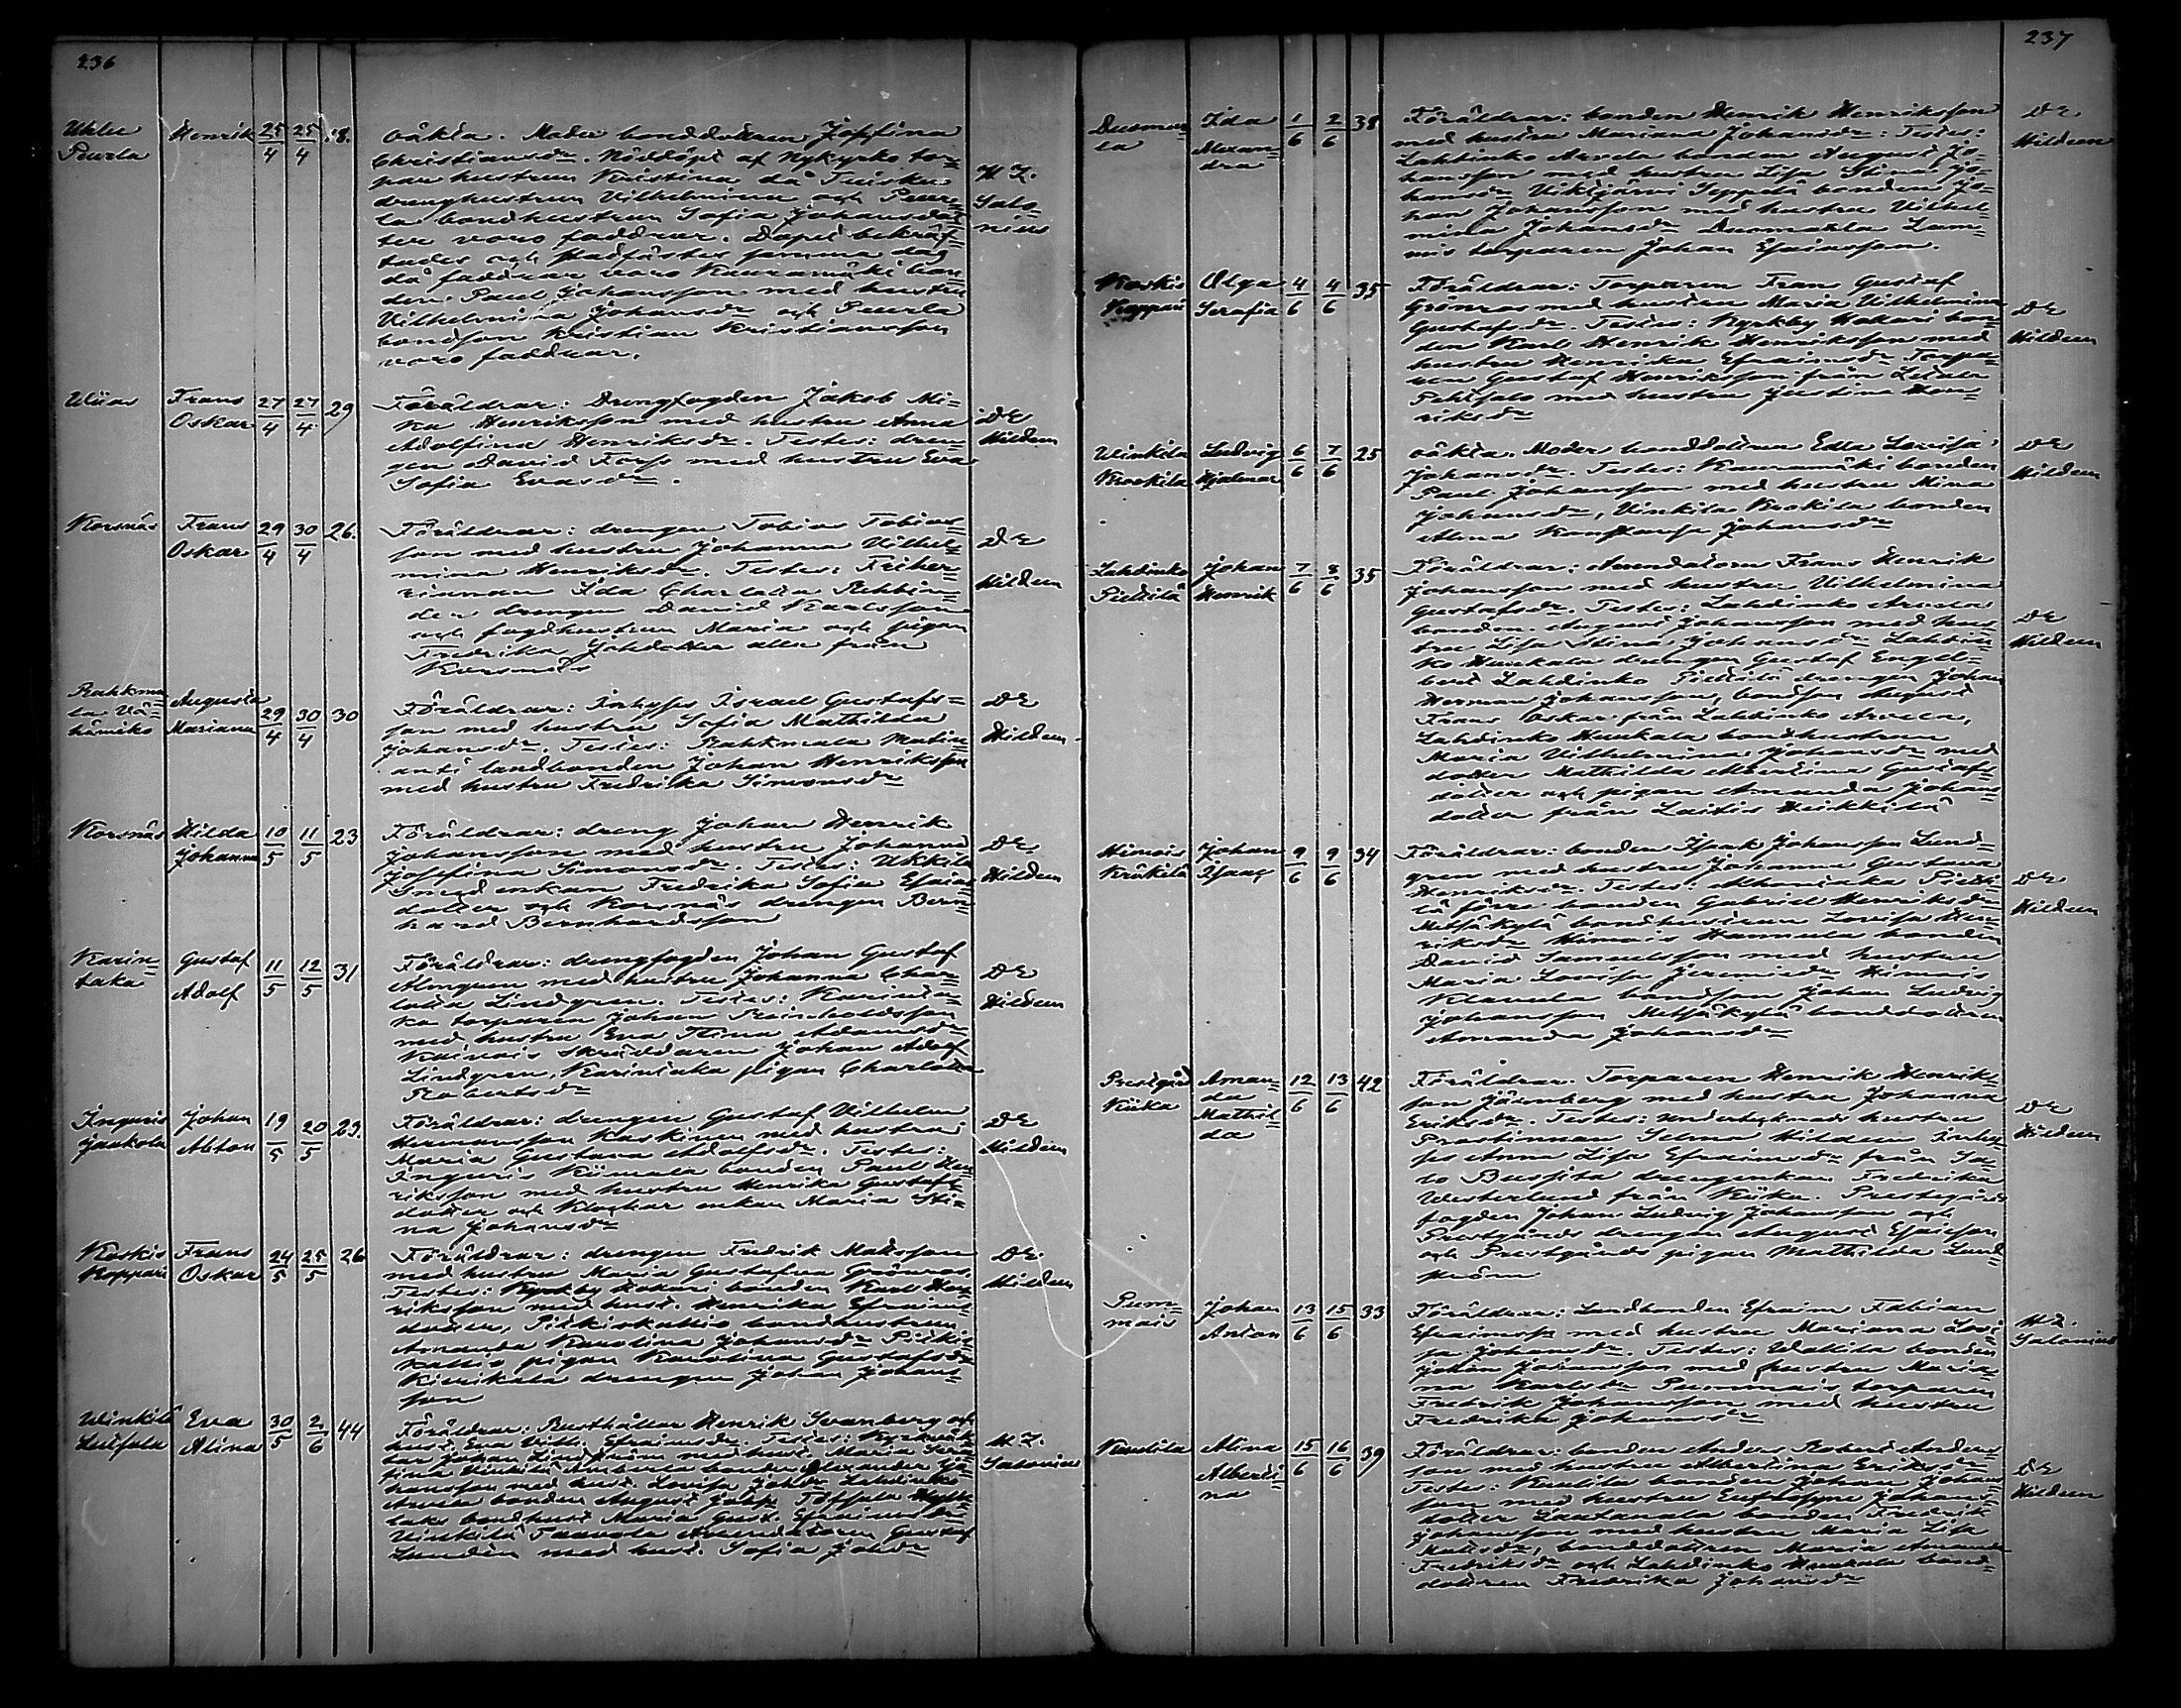 236
Uhlu Henrik 25/4 25/4 18.
Peurla
oäkta. Moder bonddottren Josefina
Christiansdr. Nöddöpt af Nykyrko tor=
par hustrun Kristina då Tuisku
dränghustrun Vilhelmina och Peur=
la bondhustrun Sofia Johansdot=
ter voro faddrar. Dopet bekräf=
tades och stadfästes samma dag
då faddrar voro Kauramäki bon
den Paul Johansson med hustru
Vilhelmina Johansdr och Peurla
bondson Kristian Kristiansson
voro faddrar.
H Z.
Salo=
nius
Wiias Frans 27/4 27/4 29
Oskar
Föräldrar: Drengfogden Jakob Mi=
ka Henriksson med hustru Anna
Adolfina Henriksdr. Testes: dren=
gen David Forss med hustru Eva
Sofia Evasdr.
DE
Hildeen
Korsnäs Frans 29/4 30/4 26.
Oskar
Föräldrar: drengen Tobias Tobias=
son med hustru Johanna Vilhel=
mina Henriksdr. Testes: Friher=
rinnan Ida Charlotta Rehbin=
der drengen David Karlsson
och fogdhustrun Maria och pigan
Fredrika Johdotter alla från
Korsnäs
DE
Hildeen
Rahkma=
la Vä=
hämiko
Augusta
Mariana 29/4 30/4 30
Föräldrar: Inhyses Israel Gustafs=
son med hustru Sofia Mathilda
Johansdr. Testes: Rahkmala Matin=
anti landbonden Johan Henriksson
med hustru Fredrika Simonsdr
DE
Hildeen
Korsnäs Hilda 10/5 11/5 23
Johanna
Föräldrar: dreng Johan Henrik
Johansson med hustru Johanna
Josefina Simonsdr. Testes: Ukkila
smed enkan Fredrika Sofia Esaias
dotter och Korsnäs drengen Bern=
hard Bernhardsson
DE
Hildeen
Karin=
taka
Gustaf 11/5 12/5 31
Adolf
Föräldrar: drengfogden Johan Gustaf
Almgren med hustru Johanna Char=
lotta Lindgren. Testes: Karinta=
ka torparen Johan Reinholdsson
med hustru Eva Stina Adamsdr
Kainois skräddaren Johan Adolf
Lindgren, Karintaka pigan Charlotta
Robertsdr
DE
Hildeen
Inguris Johan 19/5 20/5 29.
Jaakola Anton
Föräldrar: drengen Gustaf Vilhelm
Hermansson Kaskinen med hustru
Maria Gustava Adolfsdr. Testes:
Inguris Kiimala bonden Paul Hen
riksson med hustru Henrika Gustafs
dotter och Klockar enkan Maria Sti=
na Johansdr
DE
Hildeen
Koskis Frans 24/5 25/5 26
Koppari Oskar
Föräldrar: drengen Fredrik Matsson
med hustru Maria Gustafva Grönros.
Testes: Kyrkby Kakari bonden Karl Hen
riksson med hust. Henrika Efraims=
dotter, Pitkiskallio bondhustrun
Amanda Karolina Johansdr Pitkis
kallio pigan Karolina Gustafsdr
Kivikala drengen Johan Johans=
son
DE.
Hildeen
Winkilä Eva 30/5 2/6 44
Luifala Alina
Föräldrar: Rusthållar Henrik Svanberg och
hust. Eva Vilh. Efraimsdr. Testes:
bar Johan Lindström med hust. Maria Sera=
fina Vinkilä bonden Alexander Jo=
hansson med hust. Lovisa Johdr. Lahdinko
Arvela bonden August Johss.
bondhust Maria Gust. Efraimsdr
Vinkilä Taavola Arrendatorn Gustaf
Lundén med hust. Sofia Johdr
H. Z.
Salonius
237
Duomar
la
Ida 1/6 2/6 38
Alexan=
dra
Föräldrar: bonden Henrik Henriksson
med hustru Mariana Johansdr: Testes:
Lahdinko Arvela bonden August Jo=
hansson med hustru Lisa Stina Jo=
hansdr Viklijärvi Seppälä bonden Jo=
han Johansson med hustru Vilhel=
mina Johansdr Duomarla Lam=
mis torparen Johan Efraimsson.
DE
Hildeen
Koskis Olga 4/6 4/6 35
Koppari Serafia
Föräldrar: Torparen Frans Gustaf
Grönros med hustru Maria Vilhelmina
Gustafsdr. Testes: Kyrkby Kakari bon=
den Karl Henrik Henriksson med
hustru Henrika Efraimsdr Torpa=
ren Gustaf Henriksson från Letala
Pehtsalo med hustru Justina Hen=
riksdr
DE
Hildeen
Winkila Ludvig 6/6 7/6 25
Krookila Hjalmar
oäkta. Moder bonddottren Edla Lovisa
Johansdr. Testes: Kauramäki bonden
Paul Johansson med hustru Mina
Johansdr, Vinkila Krokila bonden
Anna Konstansa Johansdr
DE
Hildeen
Lahdinko Johan 7/6 8/6 35
Pietilä Henrik
Föräldrar: Arrendatorn Frans Henrik
Johansson med hustru Vilhelmina
Gustafsdr. Testes: Lahdinko Arvela
bonden August Johansson med hus
tru Lisa Stina Johansdr Lahdin=
ko Haukala drengen Gustaf Engel=
bert Lahdinko Pietilä drengen Johan
Herman Johansson, bondson August
Frans Oskar från Lahdinko Arvela,
Lahdinko Haukala bondhustrun
Maria Vilhelmina Johansdr med
dotter Mathilda Albertina Gustafs=
dotter och pigan Amanda Johans
dotter från Laitis Heikkilä
DE
Hildeen
Himois Johan 9/6 9/6 34
Kräkilä Isaac
Föräldrar: bonden Isak Johansson Lund=
gren med hustru Johanna Gustava
Henriksdr. Testes: Pietti=
lä förre bonden Gabriel Henriksdr
Metsäkylä bondhustrun Lovisa Hen=
riksdr Himois Hannula bonden
David Samuelsson med hustru
Maria Lovisa Jeremiedr Himois
Klavula bondson Johan Ludvig
Johansson Metsäkylä bonddottren
Amanda Johansdr
DE
Hildeen
Prestgård Aman= 12/6 13/6 42
Kiika da
Mathil=
da
Föräldrar: Torparen Henrik Henriks=
son Järnberg med hustru Johanna
Eriksdr. Testes: undertecknads hustru
Prostinnan Selma Hildeen Inhy=
ses Anna Lisa Efraimsdr från Sa=
lo Bussila drengenkan Fredrika
Westerlund från Kiika. Prestgårds
fogden Johan Ludvig Johansson och
Prestgårds drengen August Esaiasson
och Prestgårds pigan Mathilda Lund
ström
DE
Hildeen
Pum=
mais
Johan 13/6 15/6 33
Anton
Föräldrar: Landbonden Efraim Fabian
Efraimsson med hustru Mariana Lovi=
sa Johansdr. Testes: Wallila bonden
Johan Johansson med hustru Maria=
na Karlsdr Pummais torparen
Fredrik Johansson med hustru
Fredrika Johansdr
H Z.
Salonius
Kandila Alina 15/6 16/6 39
Alberti=
na
Föräldrar: bonden Anders Robert Anders
son med hustru Albertina Eriksdr
Testes: Kaulila bonden Johan Johans
son med hustru Eufrosyne Johans=
dotter Lautanala bonden Fredrik
Johansson med hustru Maria Lisa
Matsdr, bonddottren Maria Amanda
Fredriksdr och Lahdinko Haukala bond=
dottren Fredrika Johansdr
DE
Hildeen